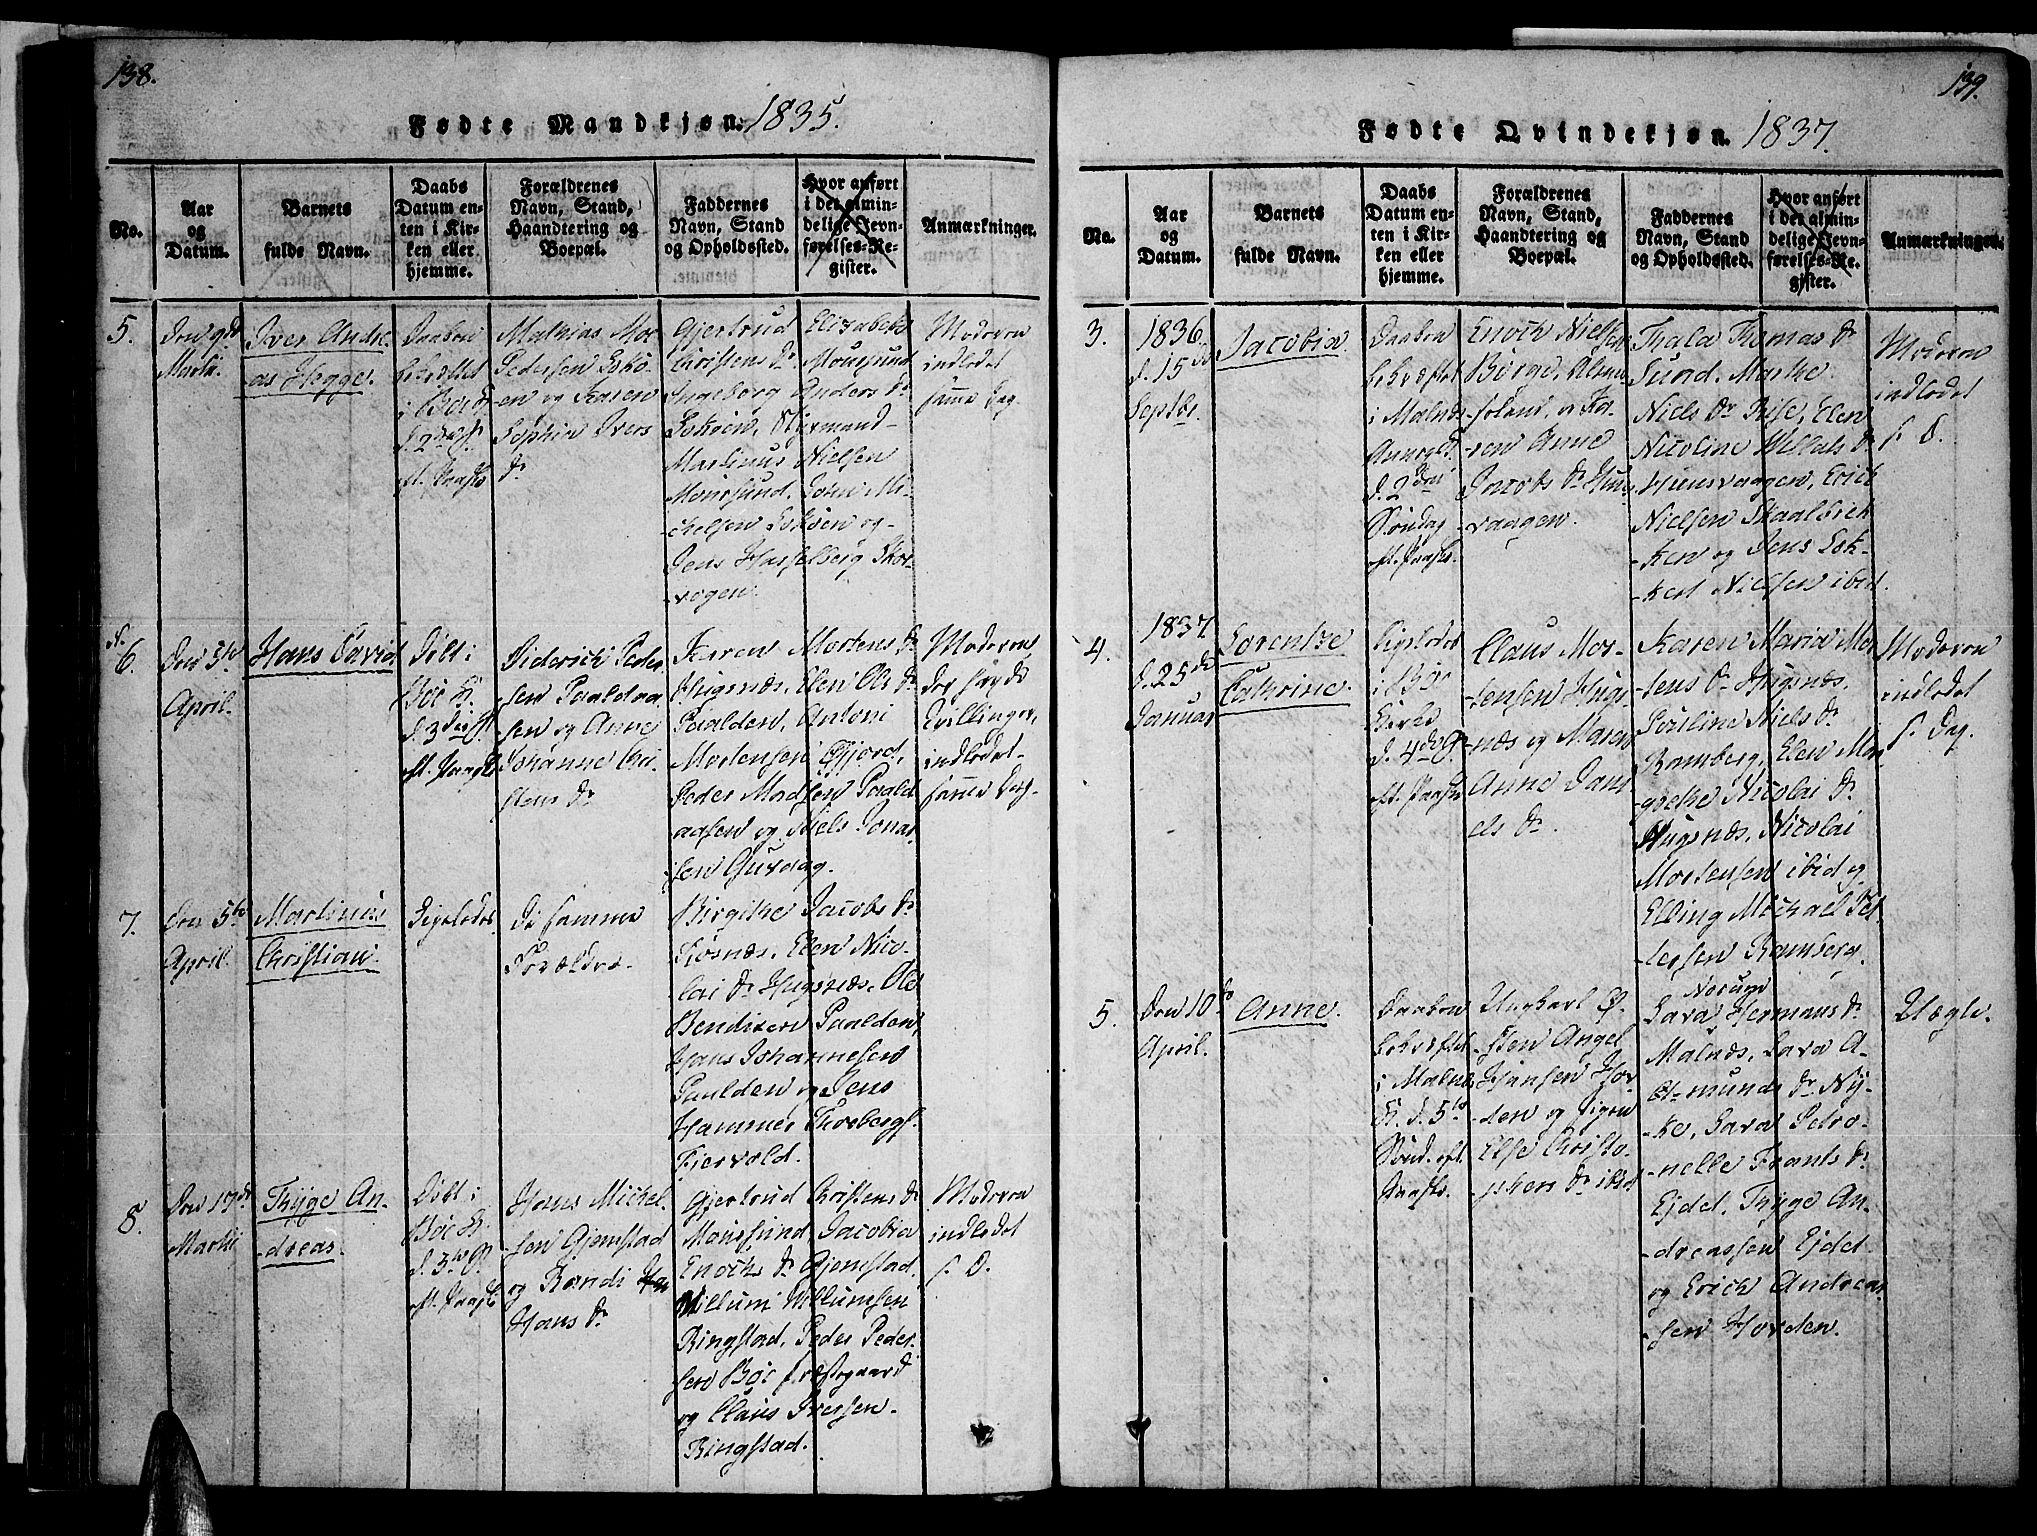 138.
Fødte Mandkjøn. 1835.
No.
Aar
og
Datum.
Barnets
fulde Navn.
Daabs
Datum en-
ten i Kir-
ken eller
hjemme.
Forældrenes
Navn, Stand,
Haandtering og
Boepæl.
Faddernes
Navn, Stand
og Opholdssted.
Hvor anført
i det almin-
delige Jevn-
førelses-Re-
gister.
Anmærkninger.
5.
Den 9de
Martii.
Iver Andre-
as Hegge.
Daaben
i Bøe K.
Mathias Mor
Pedersen Eskø-
en og Karen
Sophia Ivers
Dr
Gjertrud Elisabeth
Christens Dr Mousund
Ingeborg Anders Dr
Eskøen, Styrmand
Martinus Nielsen
Mousund, John Mi-
chelsen Eskøen og
Jens Hasselberg Skor-
vogen.
Moderen
indledet
samme Dag.
6.
Den 3de
April.
Hans David
Døbt i
Bøe K.
d. 3die S.
eft. Paaske
Diderich Peder
sen Paaldaa
sen og Anne
Johanne Chri-
stens Dr
Karen Mortens Dr
Hugsnæs, Elen Ols Dr
Paalden, Antoni
Mortensen Øfjord,
Peder Madsen Paald-
aasen og Niels Jonas
sen Guvaag.
Moderen,
indledet
samme Dag.
7.
Den 5te
April.
Martinus
Christian.
Ligeledes
De samme
Forældre.
Birgithe Jacobs Dr
Elen Nico-
lai Dr Hugsnæs, Ole
Bendixen Paalden,
Hans Johannesen
Paalden og Jens
Hammer Thorbergs.
Fiervold.
8.
Den 17de
Martii
Thyge An-
dreas.
Døbt i
Bøe K.
d. 3die S.
eft. Paaske
Hans Michel
sen Gjemstad
og Randi
Hans Dr
Gjertrud Christens Dr
Mousund Jacobia
Enochs Dr Gjemstad.
Villum Villumsen
Ringstad, Peder Peder-
sen Bøe Præstegaard
og Claus Iversen
Ringstad.
Moderen
indledet
s. D.
139.
Fødte Qvindekjøn. 1837.
No.
Aar
og
Datum.
Barnets
fulde Navn.
Daabs
Datum en-
ten i Kir-
ken eller
hjemme.
Forældrenes
Navn, Stand,
Haandtering og
Boepæl.
Faddernes
Navn, Stand
og Opholdssted.
Hvor anført
i det almin-
delige Jevn-
førelses-Re-
gister.
Anmærkninger.
3.
1836
d. 15de
Septbr.
Jacobia.
Daaben
bekræftet
i Malnæs
d. 2den
Søndag
eft. Paaske.
Enoch Nielsen
Børge,
og Ka-
ren Anne
Jacobs Dr
vaagen.
Thala Thomas Dr
Sund. Marthe
Niels Dr Riise, Elen
Nicoline Willats Dr
Erich
Nielsen Skaalbrek-
ken og Jens Lok-
kert Nielsen ibid.
Moderen
indledet
s. D.
4.
1837.
d. 25de
Januar
Lorentze
Cathrine.
Ligeledes
i Bøe
Kirke
d. 4de S.
eft. Paaske
Claus Mor-
tensen Hugs-
næs og Maren
Anne Dani
els Dr.
Karen Maria Mor
tens Dr Hugsnæs,
Niels Dr
Ramberg, Elen Mar-
grethe Nicolai Dr
Hugsnæs, Nicolai
Mortensen ibid og
Elling Michael Pet
tersen Ramberg.
Moderen
indledet
s. Dag.
5.
Den 10de
April.
Anne.
Daaben
bekræftet
i Malnæs
K. d. 5te
Sønd. eft.
Paaske.
Ungkarl
sten Angel
Hansen Hor-
den og Pigen
Else Christo-
phers Dr ibid
Sara Hermans Dr
Malnæs, Sara A-
munds Dr Ny-
ke, Sara Petro-
nelle Frants Dr
Eidet, Thyge An-
dreassen Eidet
og Erich Andreas
sen Horden.
Uægte.